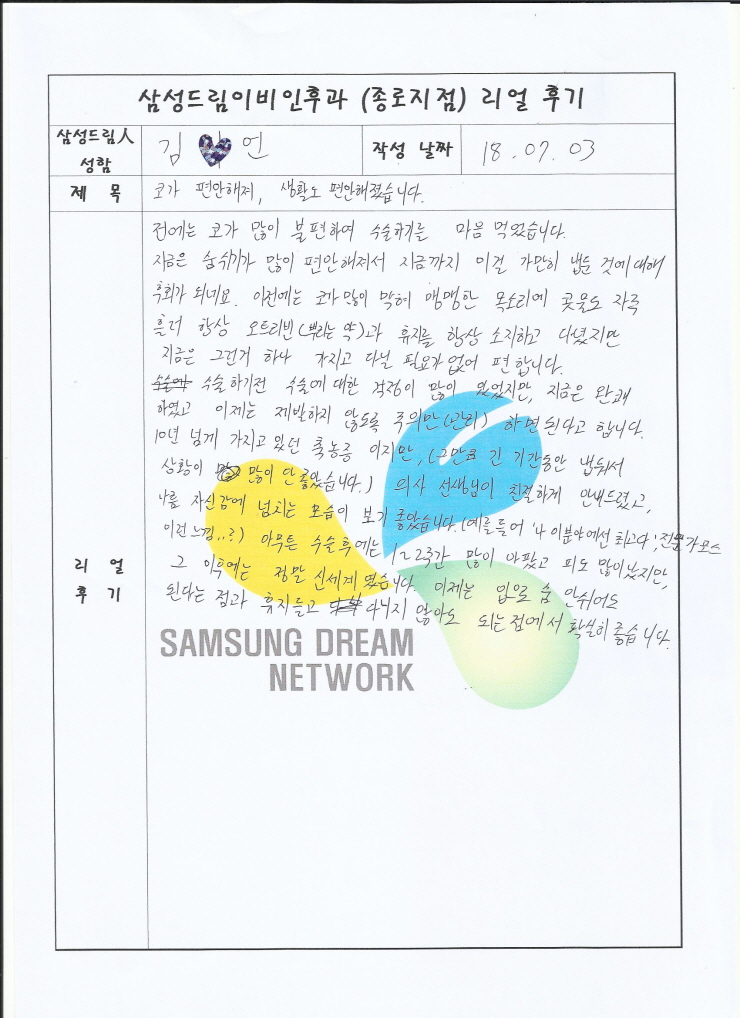 삼성드림이비인후과 (종로지점) 리얼 후기
삼성드림人 성함
김 언
작성 날짜
18.07.03
제 목
코가 편안해져, 생활도 편안해졌습니다.
리 얼 후 기
전에는 코가 많이 불편하여 수술하기를 마음 먹었습니다.
지금은 숨쉬기가 많이 편안해져서 지금까지 이걸 가만히 냅둔 것에 대해
후회가 되네요. 이전에는 코가 많이 막혀 맹맹한 목소리에 콧물도 자주
흘러 항상 오트리빈(뿌리는 약)과 휴지를 항상 소지하고 다녔지만
지금은 그런거 하나 가지고 다닐 필요가 없어 편합니다.
수술하기전 수술에 대한 걱정이 많이 있었지만, 지금은 완쾌
하였고 이제는 재발하지 않도록 주의만(관리) 하면 된다고 합니다.
10년 넘게 가지고 있던 축농증 이지만, (그만큼 긴 기간동안 냅둬서
상황이 많이 안 좋았습니다.) 의사 선생님이 친절하게 안내드렸고,
나름 자신감에 넘치는 모습이 보기 좋았습니다. (예를들어 '나 이분야에선 최고다', 전문가포스
이런 느낌..?) 아무튼 수술후에는 1~2주간 많이 아팠고 피도 많이났지만,
그 이후에는 정말 신세계 였습니다. 이제는 입으로 숨 안쉬어도
된다는 점과 휴지들고 다니지 않아도 되는점에서 확실히 좋습니다.
SAMSUNG DREAM
NETWORK